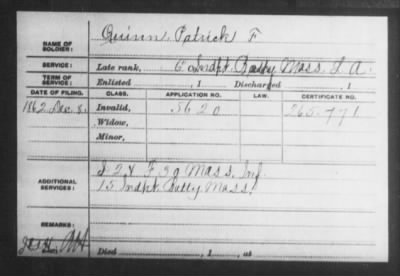 NAME OF SOLDIER: Quinn, Patrick F
SERVICE: Late rank, 6" Indpt. Batty Mass. L A.
TERM OF SERVICE: Enlisted , 1 Discharged , 1
DATE OF FILING. CLASS. APPLICATION NO. LAW. CERTIFICATE NO.
1862 Dec. 8. Invalid, 5620 265.771
Widow,
Minor,
ADDITIONAL SERVICES: I 24 F 39 Mass. Inf.
15 Indpt. Batty Mass.
REMARKS:
Died , 1 , at